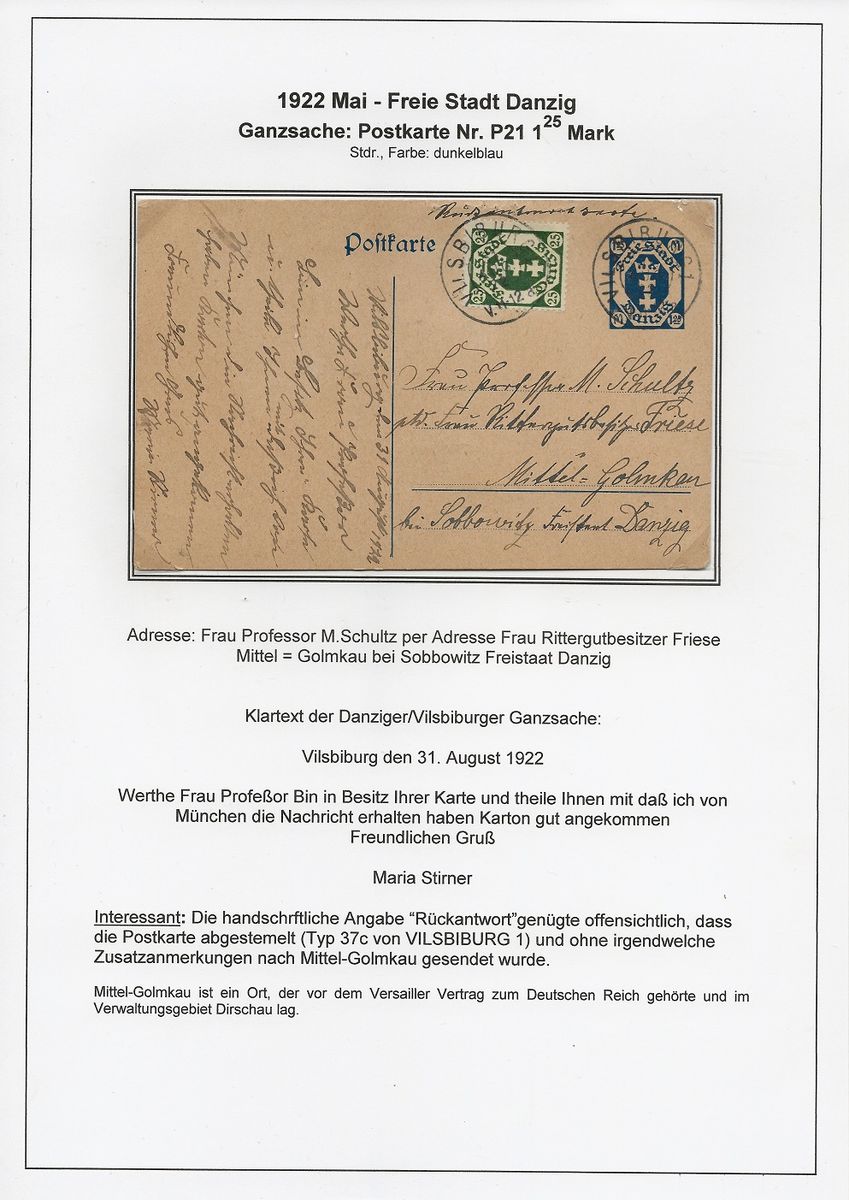 1922 Mai - Freie Stadt Danzig
Ganzsache: Postkarte Nr. P21 1 25 Mark
Stdr., Farbe: dunkelblau
Rückantwortkarte.
Postkarte
VILSBIBURG 1
25 25
Freie Stadt
Danzig
25 25
VILSBIBURG 1
Freie Stadt
Danzig
Frau Professor M. Schultz
Frau Rittergutsbesitzer Friese
Mittel=Golmkau
bei Sobbowitz Freistaat Danzig
Vilsbiburg den 31. August 1922
Werthe Frau Profeßor
Bin im Besitz Ihrer Karte
u. theile Ihnen mit daß ich von
München die Nachricht erhalten
haben Karton gut angekommen
Freundlichen Gruß
Adresse: Frau Professor M.Schultz per Adresse Frau Rittergutbesitzer Friese
Mittel = Golmkau bei Sobbowitz Freistaat Danzig
Klartext der Danziger/Vilsbiburger Ganzsache:
Vilsbiburg den 31. August 1922
Werthe Frau Profeßor Bin in Besitz Ihrer Karte und theile Ihnen mit daß ich von
München die Nachricht erhalten haben Karton gut angekommen
Freundlichen Gruß
Maria Stirner
Interessant: Die handschrftliche Angabe “Rückantwort”genügte offensichtlich, dass
die Postkarte abgestemelt (Typ 37c von VILSBIBURG 1) und ohne irgendwelche
Zusatzanmerkungen nach Mittel-Golmkau gesendet wurde.
Mittel-Golmkau ist ein Ort, der vor dem Versailler Vertrag zum Deutschen Reich gehörte und im
Verwaltungsgebiet Dirschau lag.